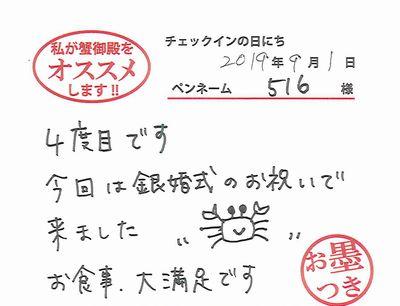 私が蟹御殿を
オススメ
します!!
チェックインの日にち
2019年9月1日
ペンネーム 516 様
4度目です
今回は銀婚式のお祝いで
来ました
お食事、大満足です
お墨つき